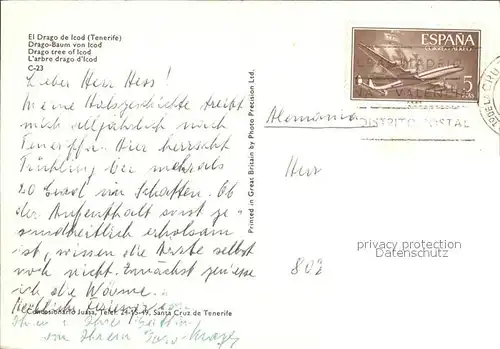 El Drago de Icod (Tenerife)
Drago-Baum von Icod
Drago tree of Icod
L'arbre drago d'Icod
C-23
Lieber Herr Hess!
Meine Halsgeschichte treibt
mich alljährlich nach
Teneriffa. Hier herrscht
Frühling bei mehr als
20 Grad im Schatten. Ob
der Aufenthalt sonst ge-
sundheitlich erholsam
ist, wissen die Ärzte selbst
noch nicht. Zunächst geniesse
ich die Wärme.
Herzliche
Ihnen u. Ihrer Gattin
von Ihrem
Concesionario Juasa, Telef. 21-15-49, Santa Cruz de Tenerife
Printed in Great Britain by Photo Precision Ltd.
ESPAÑA
CORREO AEREO
5
PTAS
DISTRITO POSTAL
Alemania
Herr
802
privacy protection
Datenschutz